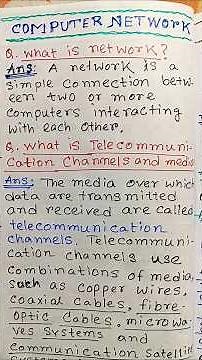 COMPUTER NETWORK
Q. what is network?
Ans: A network is a
simple connection betw-
een two or more
computers interacting
with each other.
Q. what is Telecommuni-
cation channels and media
Ans: The media over which
data are transmitted
and received are called
telecommunication
channels. Telecommuni-
cation channels use
combinations of media,
such as copper wires,
coaxial cables, fibre-
optic cables, microwa-
ves systems and
communication satellite